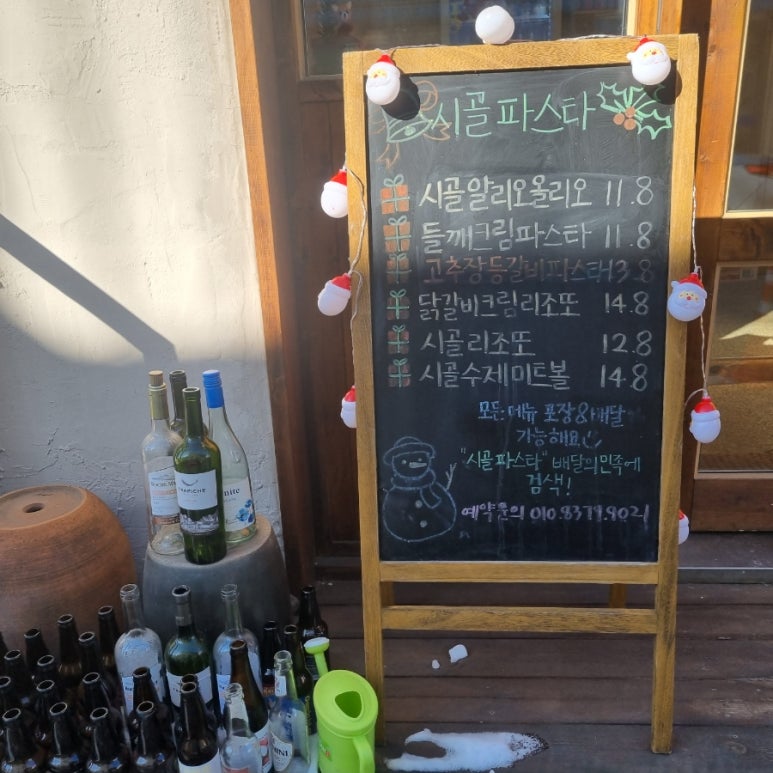 시골파스타
시골알리오올리오 11.8
들깨크림파스타 11.8
고추장등갈비파스타13.8
닭갈비크림리조또 14.8
시골리조또 12.8
시골수제미트볼 14.8
모든메뉴 포장&배달
가능해요
"시골파스타" 배달의민족에
검색!
예약문의 010.8379.9021